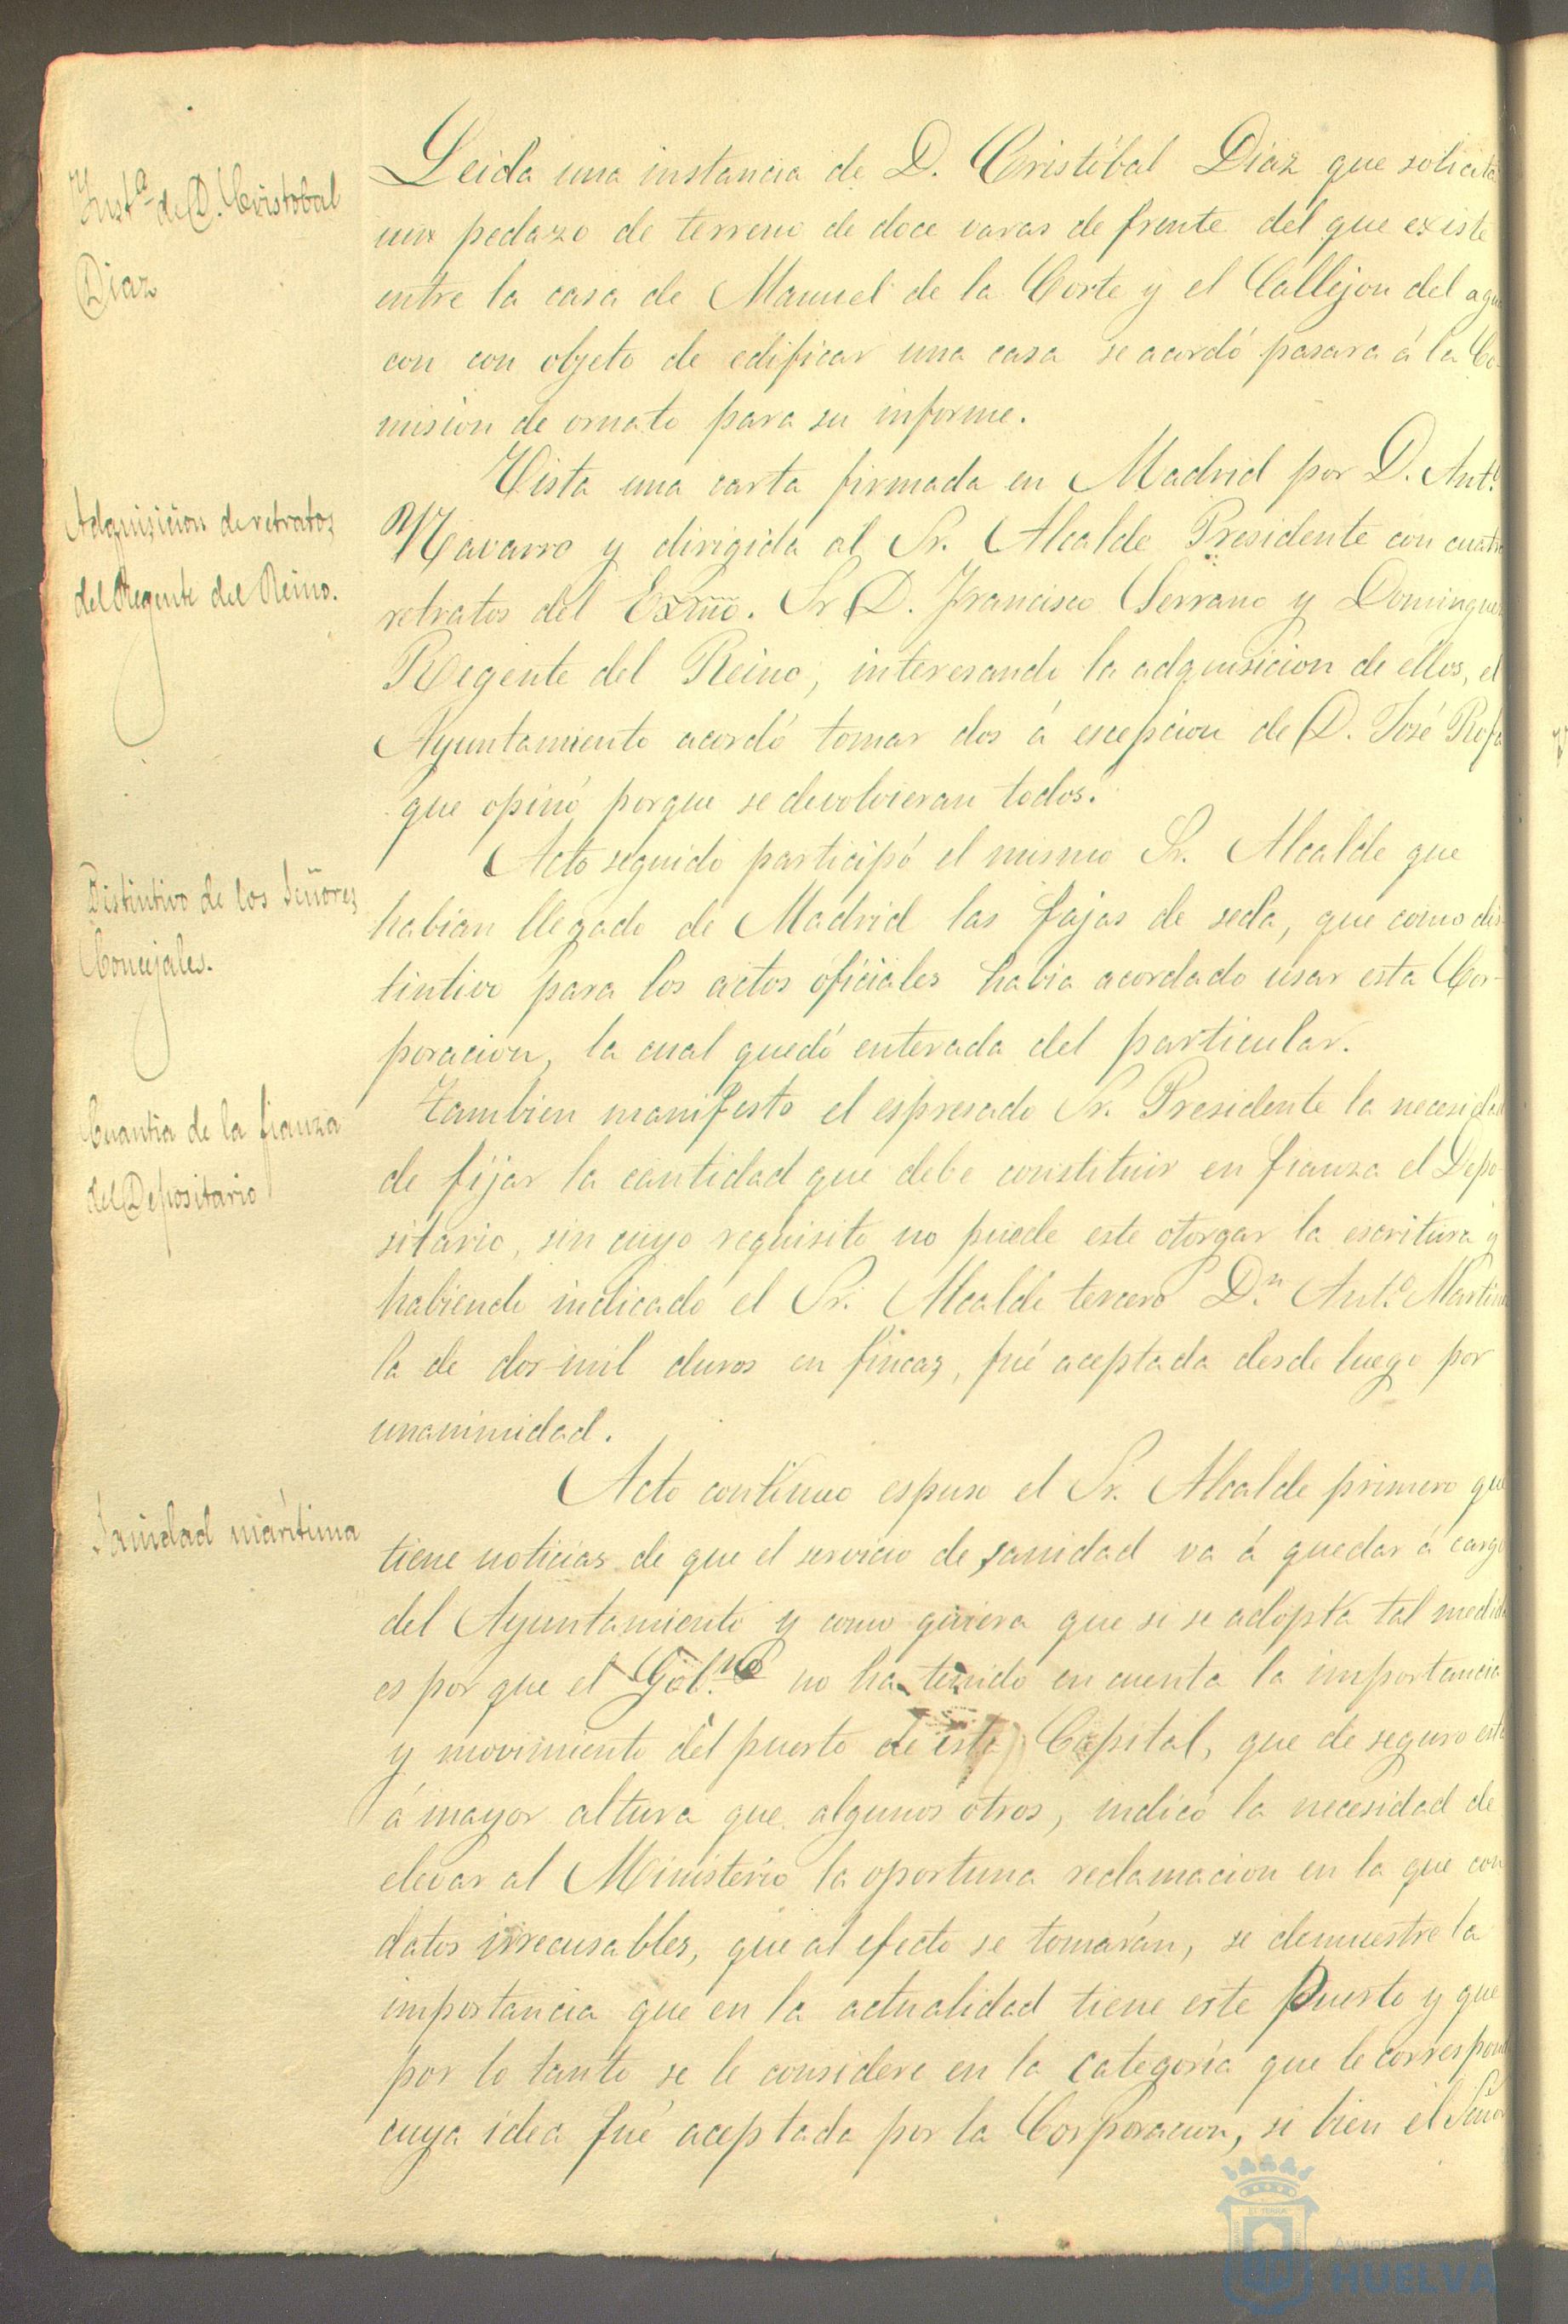 Inst.ª de D. Cristobal
Diaz
Leida una instancia de D. Cristóbal Diaz que solicita
un pedazo de terreno de doce varas de frente del que existe
entre la casa de Manuel de la Corte y el Callejon del agu
con con objeto de edificar una casa se acordó pasara á la Co-
mision de ornato para su informe.
Adquisicion de retratos
del Regente del Reino.
Vista una carta firmada en Madrid por D. Ant.º
Navarro y dirigida al Sr. Alcalde Presidente con cuatro
retratos del Exmo. Sr D. Francisco Serrano y Dominguez
Regente del Reino, interesando la adquisicion de ellos, el
Ayuntamiento acordó tomar dos á escepcion de D. José Rofa
que opinó porque se devolvieran todos.
Distintivo de los Señores
Concejales.
Acto seguido participó el mismo Sr. Alcalde que
habian llegado de Madrid las fajas de seda, que como dis
tintivo para los actos oficiales habia acordado usar esta Cor-
poracion, la cual quedó enterada del particular.
Cuantia de la fianza
del Depositario
Tambien manifesto el espresado Sr. Presidente la necesidad
de fijar la cantidad que debe constituir en fianza el Depo
sitario, sin cuyo requisito no puede este otorgar la escritura y
habiendo indicado el Sr. Alcalde tercero D.n Ant.º Martin
la de dos mil duros en fincas, fué aceptada desde luego por
unanimidad.
Sanidad maritima
Acto continuo espuso el Sr. Alcalde primero que
tiene noticias de que el servicio de sanidad va á quedar á cargo
del Ayuntamiento y como quiera que si se adopta tal medida
es por que el Gob.no no ha tenido en cuenta la importancia
y movimiento del puerto de esta Capital, que de seguro está
á mayor altura que algunos otros, indicó la necesidad de
elevar al Ministerio la oportuna reclamacion en la que con
datos irrecusables, que al efecto se tomarán, se demuestre la
importancia que en la actualidad tiene este Puerto y que
por lo tanto se le considere en la categoria que le correspond
cuya idea fué aceptada por la Corporacion, si bien el Señor
Ayuntamiento
HUELVA